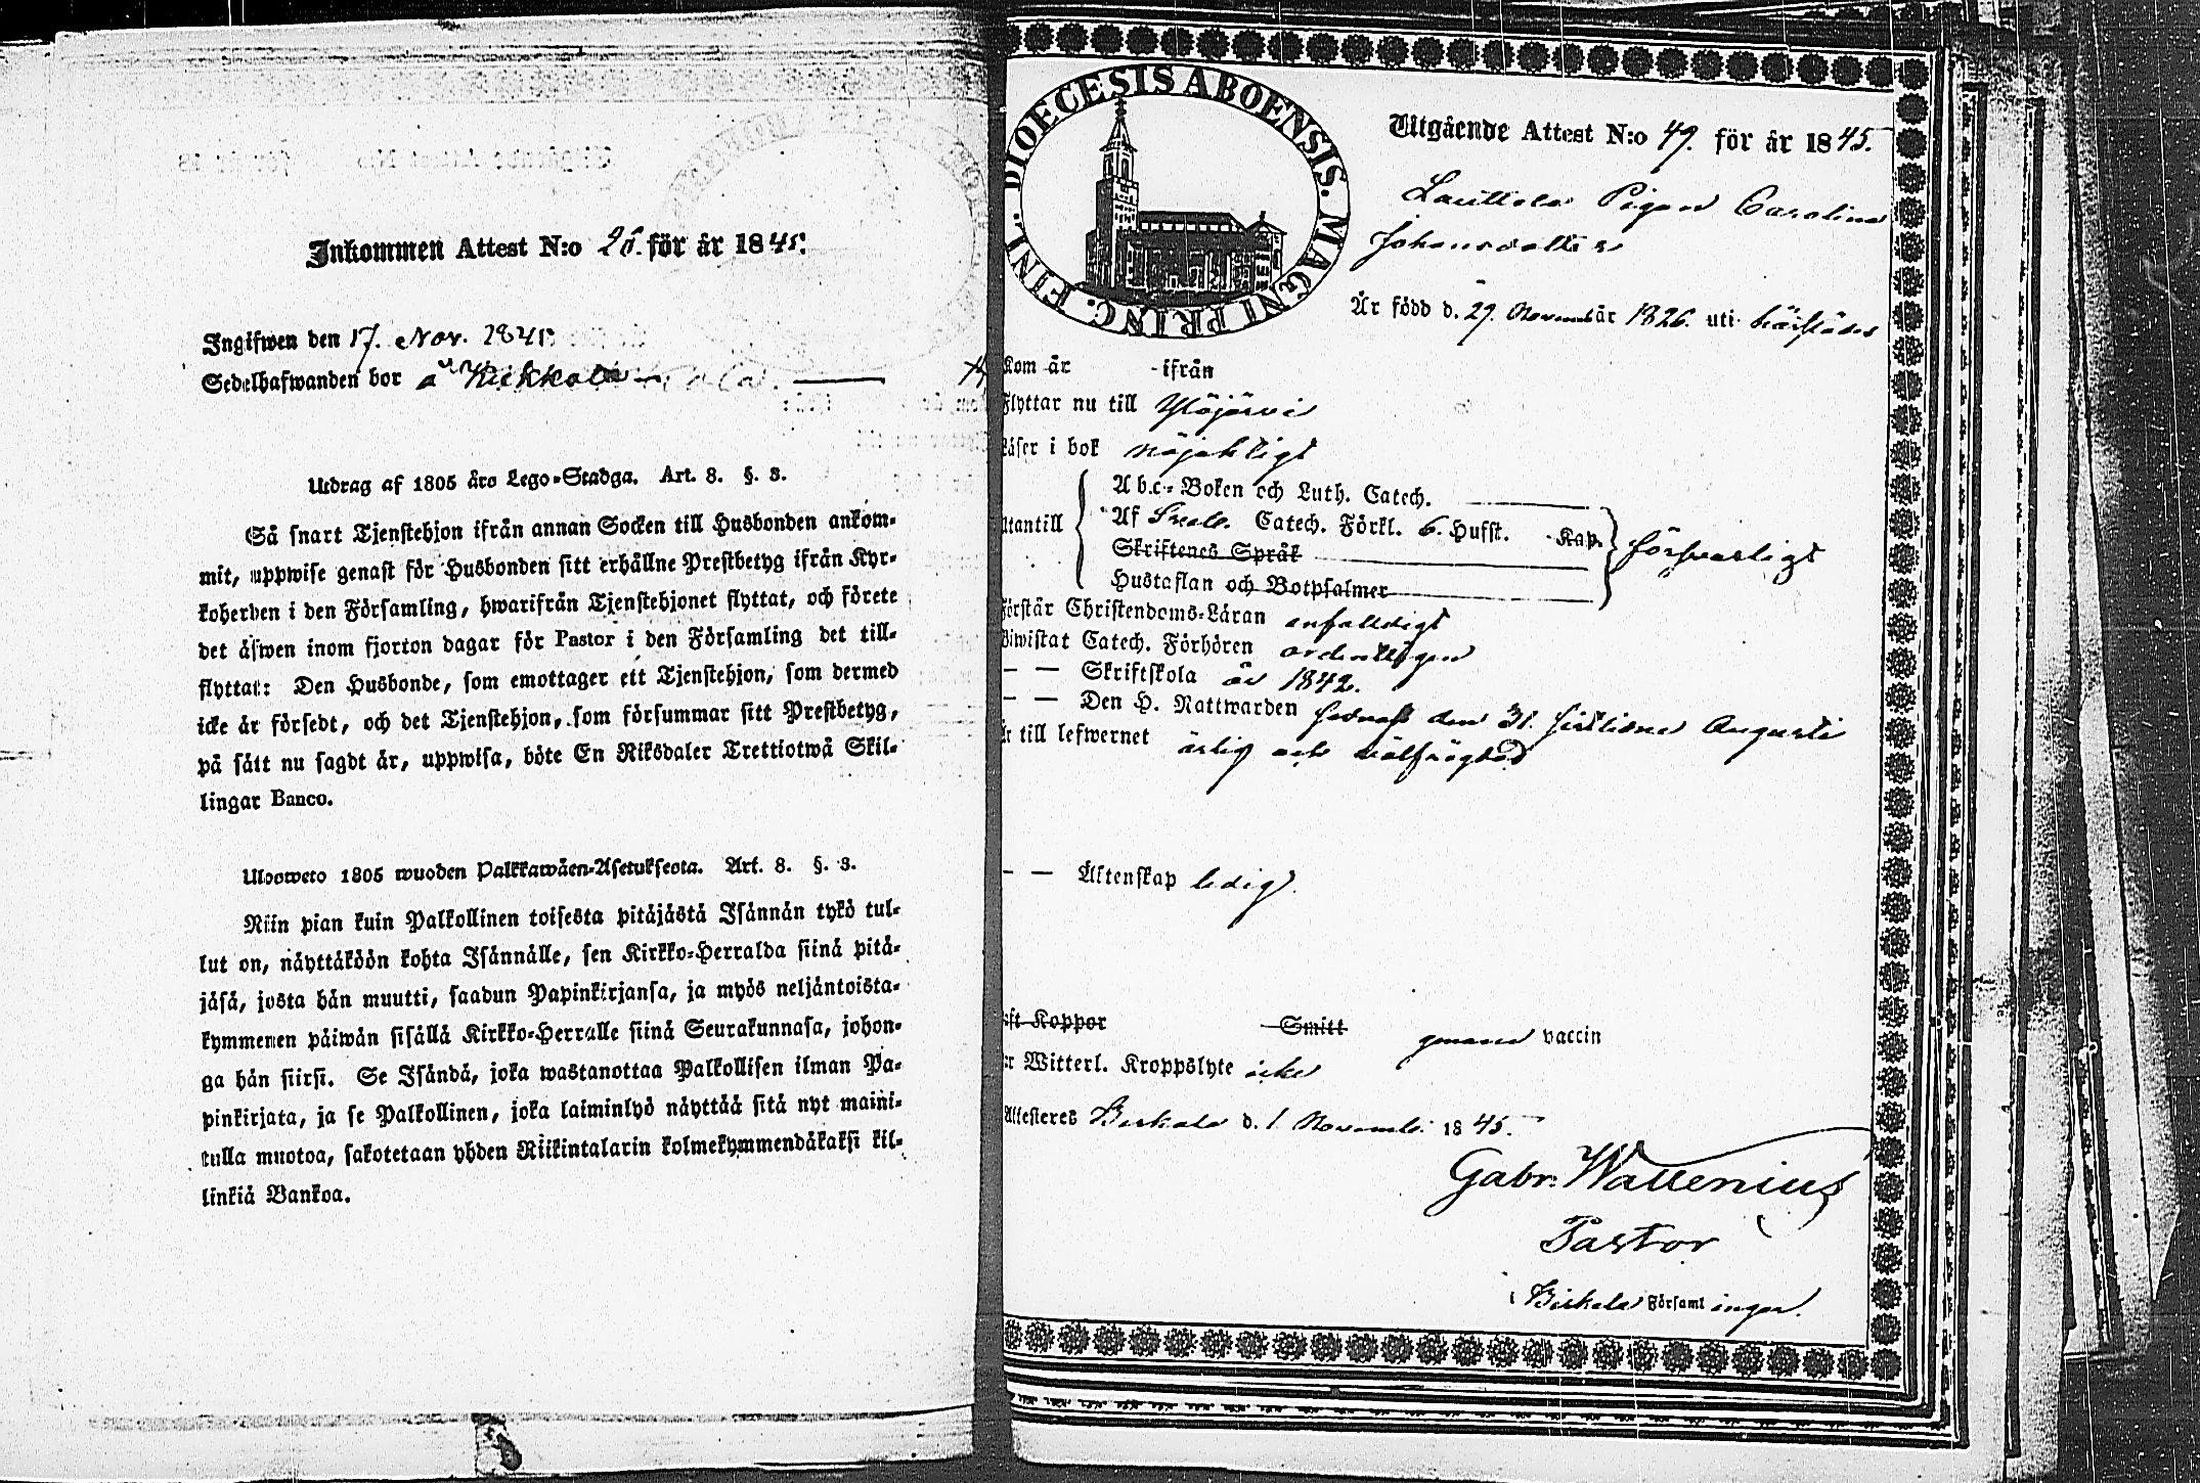 Inkommen Attest N:o 26. för år 1845.
Ingifwen den 17. Nov. 1845
Sedelhafwanden bor å Kikkala
Utdrag af 1805 års Lego-Stadga. Art. 8. §. 3.
Så snart Tjenstehjon ifrån annan Socken till Husbonden ankom-
mit, uppwise genast för Husbonden sitt erhållne Prestbetyg ifrån Kyr-
koherden i den Församling, hwarifrån Tjenstehjonet flyttat, och förete
det äfwen inom fjorton dagar för Pastor i den Församling det till-
flyttat: Den Husbonde, som emottager ett Tjenstehjon, som dermed
icke är försedt, och det Tjenstehjon, som försummar sitt Prestbetyg,
på sätt nu sagdt är, uppwisa, böte En Riksdaler Trettiotwå Skil-
lingar Banco.
Ulosweto 1805 wuoden Palkkawäen-Asetuksesta. Art. 8. §. 3.
Niin pian kuin Palkollinen toisesta pitäjästä Isännän tykö tul-
lut on, näyttäköön kohta Isännälle, sen Kirkko-Herralda siinä pitä-
jäsä, josta hän muutti, saadun Papinkirjansa, ja myös neljäntoista-
kymmenen päiwän sisällä Kirkko-Herralle siinä Seurakunnasa, johon-
ga hän siirsi. Se Isändä, joka wastanottaa Palkollisen ilman Pa-
pinkirjata, ja se Palkollinen, joka laiminlyö näyttää sitä nyt maini-
tulla muotoa, sakotetaan yhden Riikintalarin kolmekymmendäkaksi kil-
linkiä Bankoa.
DIOECESIS ABOENSIS. MAGNI PRINC. FINL.
Utgående Attest N:o 49. för år 1845.
Lauttala Pigan Carolina
Johansdotter
Är född d. 29. November är 1826. uti härstädes
Kom år ifrån
Flyttar nu till Ylöjärvi
Läser i bok nöjaktigt
Utantill
Abc-Boken och Luth. Catech.
Af Sveb. Catech. Förkl. 6. Hufst. Kap.
Skriftenes Språk
Hustaflan och Botpsalmer
försvarligt
Förstår Christendoms-Läran enfaldigt
Biwistat Catech. Förhören ordentligen
— — Skriftskola år 1842.
— — Den H. Nattwarden sednast den 31. sistledne Augusti
Är till lefwernet ärlig och välfrägdad
— — Äktenskap ledig.
aft Koppor Smitt genom vaccin
er Witterl. Kroppslyte icke
Attesteres Birkala d. 1 Novemb. 1845.
Gabr. Wallenius
Pastor
i Birkala Församlingar.